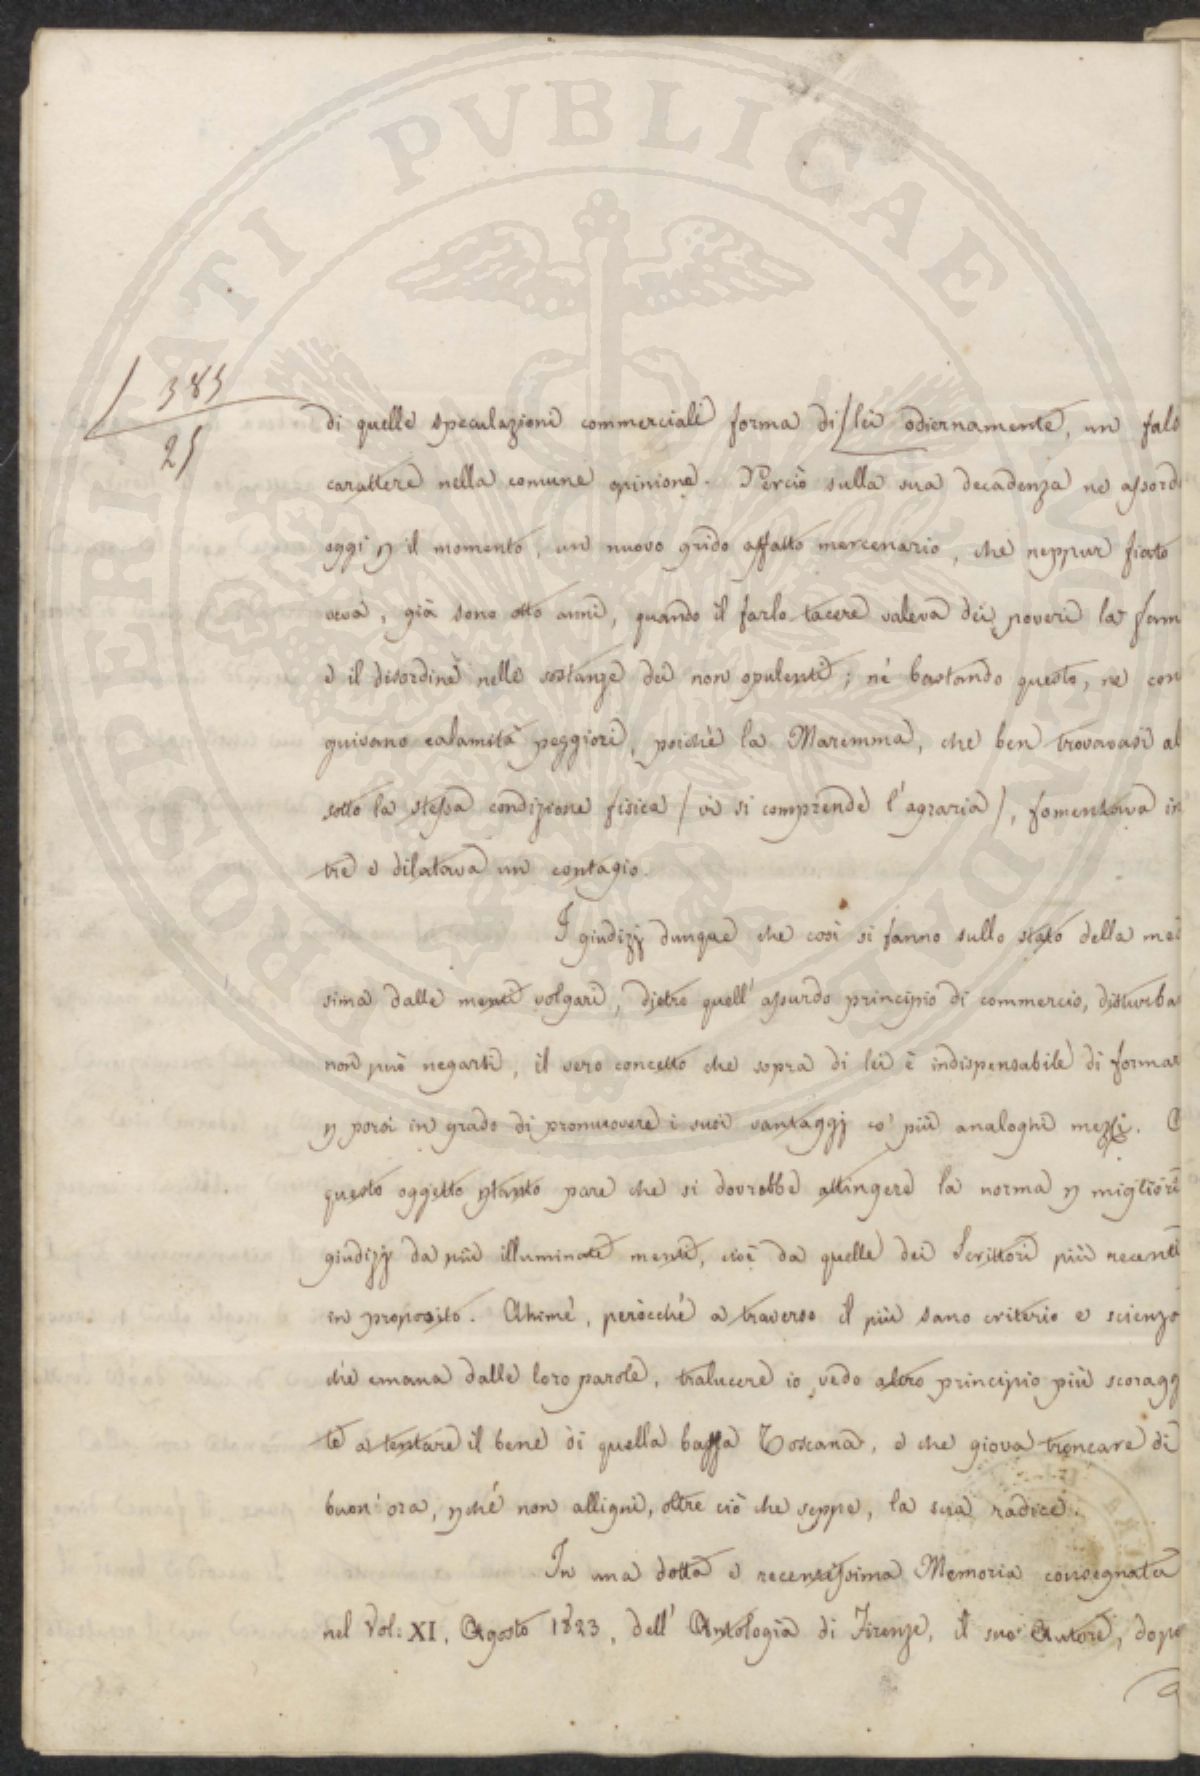 PROSPERITATI PVBLICAE
385
25
di quelle speculazioni commerciali forma di/lei odiernamente, un fals
carattere nella comune opinione. Perciò sulla sua decadenza ne assord
oggi p il momento, un nuovo grido affatto mercenario, che neppur fiato
veva, già sono otto anni, quando il farlo tacere valeva dei poveri la fam
e il disordine nelle sostanze dei non opulenti; nè bastando questo, ne con
guivano calamità peggiori, poichè la Maremma, che ben trovavasi al
sotto la stessa condizione fisica (vi si comprende l'agraria), fomentava in
tre e dilatava un contagio.
I giudizj dunque che così si fanno sullo stato della mede
sima dalle menti volgari, dietro quell'assurdo principio di commercio, disturba
non può negarsi, il vero concetto che sopra di lei è indispensabile di formar
p porsi in grado di promuovere i suoi vantaggj co' più analoghi mezzi.
questo oggetto ptanto pare che si dovrebbe attingere la norma p migliori
giudizj da più illuminate menti, cioè da quelle dei Scrittori più recenti
in proposito. Ahimè, perocchè a traverso il più sano criterio e scienza
che emana dalle loro parole, tralucere io vedo altro principio più scoragg
te a tentare il bene di quella bassa Toscana, e che giova troncare di
buon'ora, pchè non alligni, oltre ciò che seppe, la sua radice.
In una dotta e recentissima Memoria consegnata
nel Vol: XI, Agosto 1823, dell'Antologia di Firenze, il suo Autore, dopo